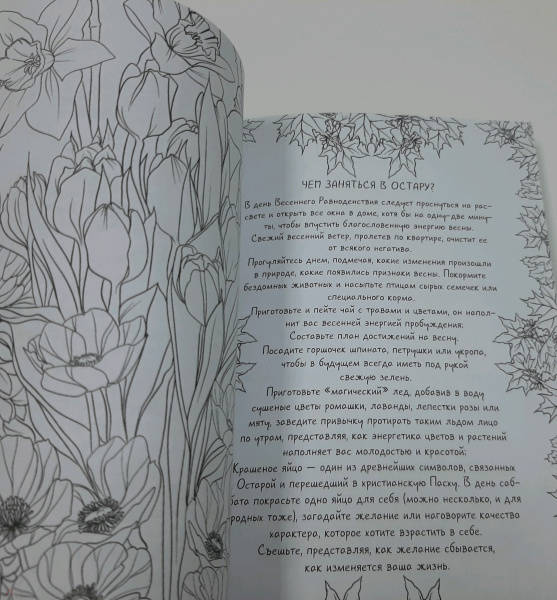 ЧЕМ ЗАНЯТЬСЯ В ОСТАРУ?
В день Весеннего Равноденствия следует проснуться на рас-
свете и открыть все окна в доме, хотя бы на одну-две мину-
ты, чтобы впустить благословенную энергию весны.
Свежий весенний ветер, пролетев по квартире, очистит ее
от всякого негатива.
Прогуляйтесь днем, подмечая, какие изменения произошли
в природе, какие появились признаки весны. Покормите
бездомных животных и насыпьте птицам сырых семечек или
специального корма.
Приготовьте и пейте чай с травами и цветами, он напол-
нит вас весенней энергией пробуждения.
Составьте план достижений на весну.
Посадите горшочек шпината, петрушки или укропа,
чтобы в будущем всегда иметь под рукой
свежую зелень.
Приготовьте «магический» лед, добавив в воду
сушеные цветы ромашки, лаванды, лепестки розы или
мяту, заведите привычку протирать таким льдом лицо
по утрам, представляя, как энергетика цветов и растений
наполняет вас молодостью и красотой.
Крашеное яйцо — один из древнейших символов, связанных
Остарой и перешедший в христианскую Пасху. В день саб-
бата покрасьте одно яйцо для себя (можно несколько, и для
родных тоже), загадайте желание или наговорите качество
характера, которое хотите взрастить в себе.
Съешьте, представляя, как желание сбывается,
как изменяется ваша жизнь.